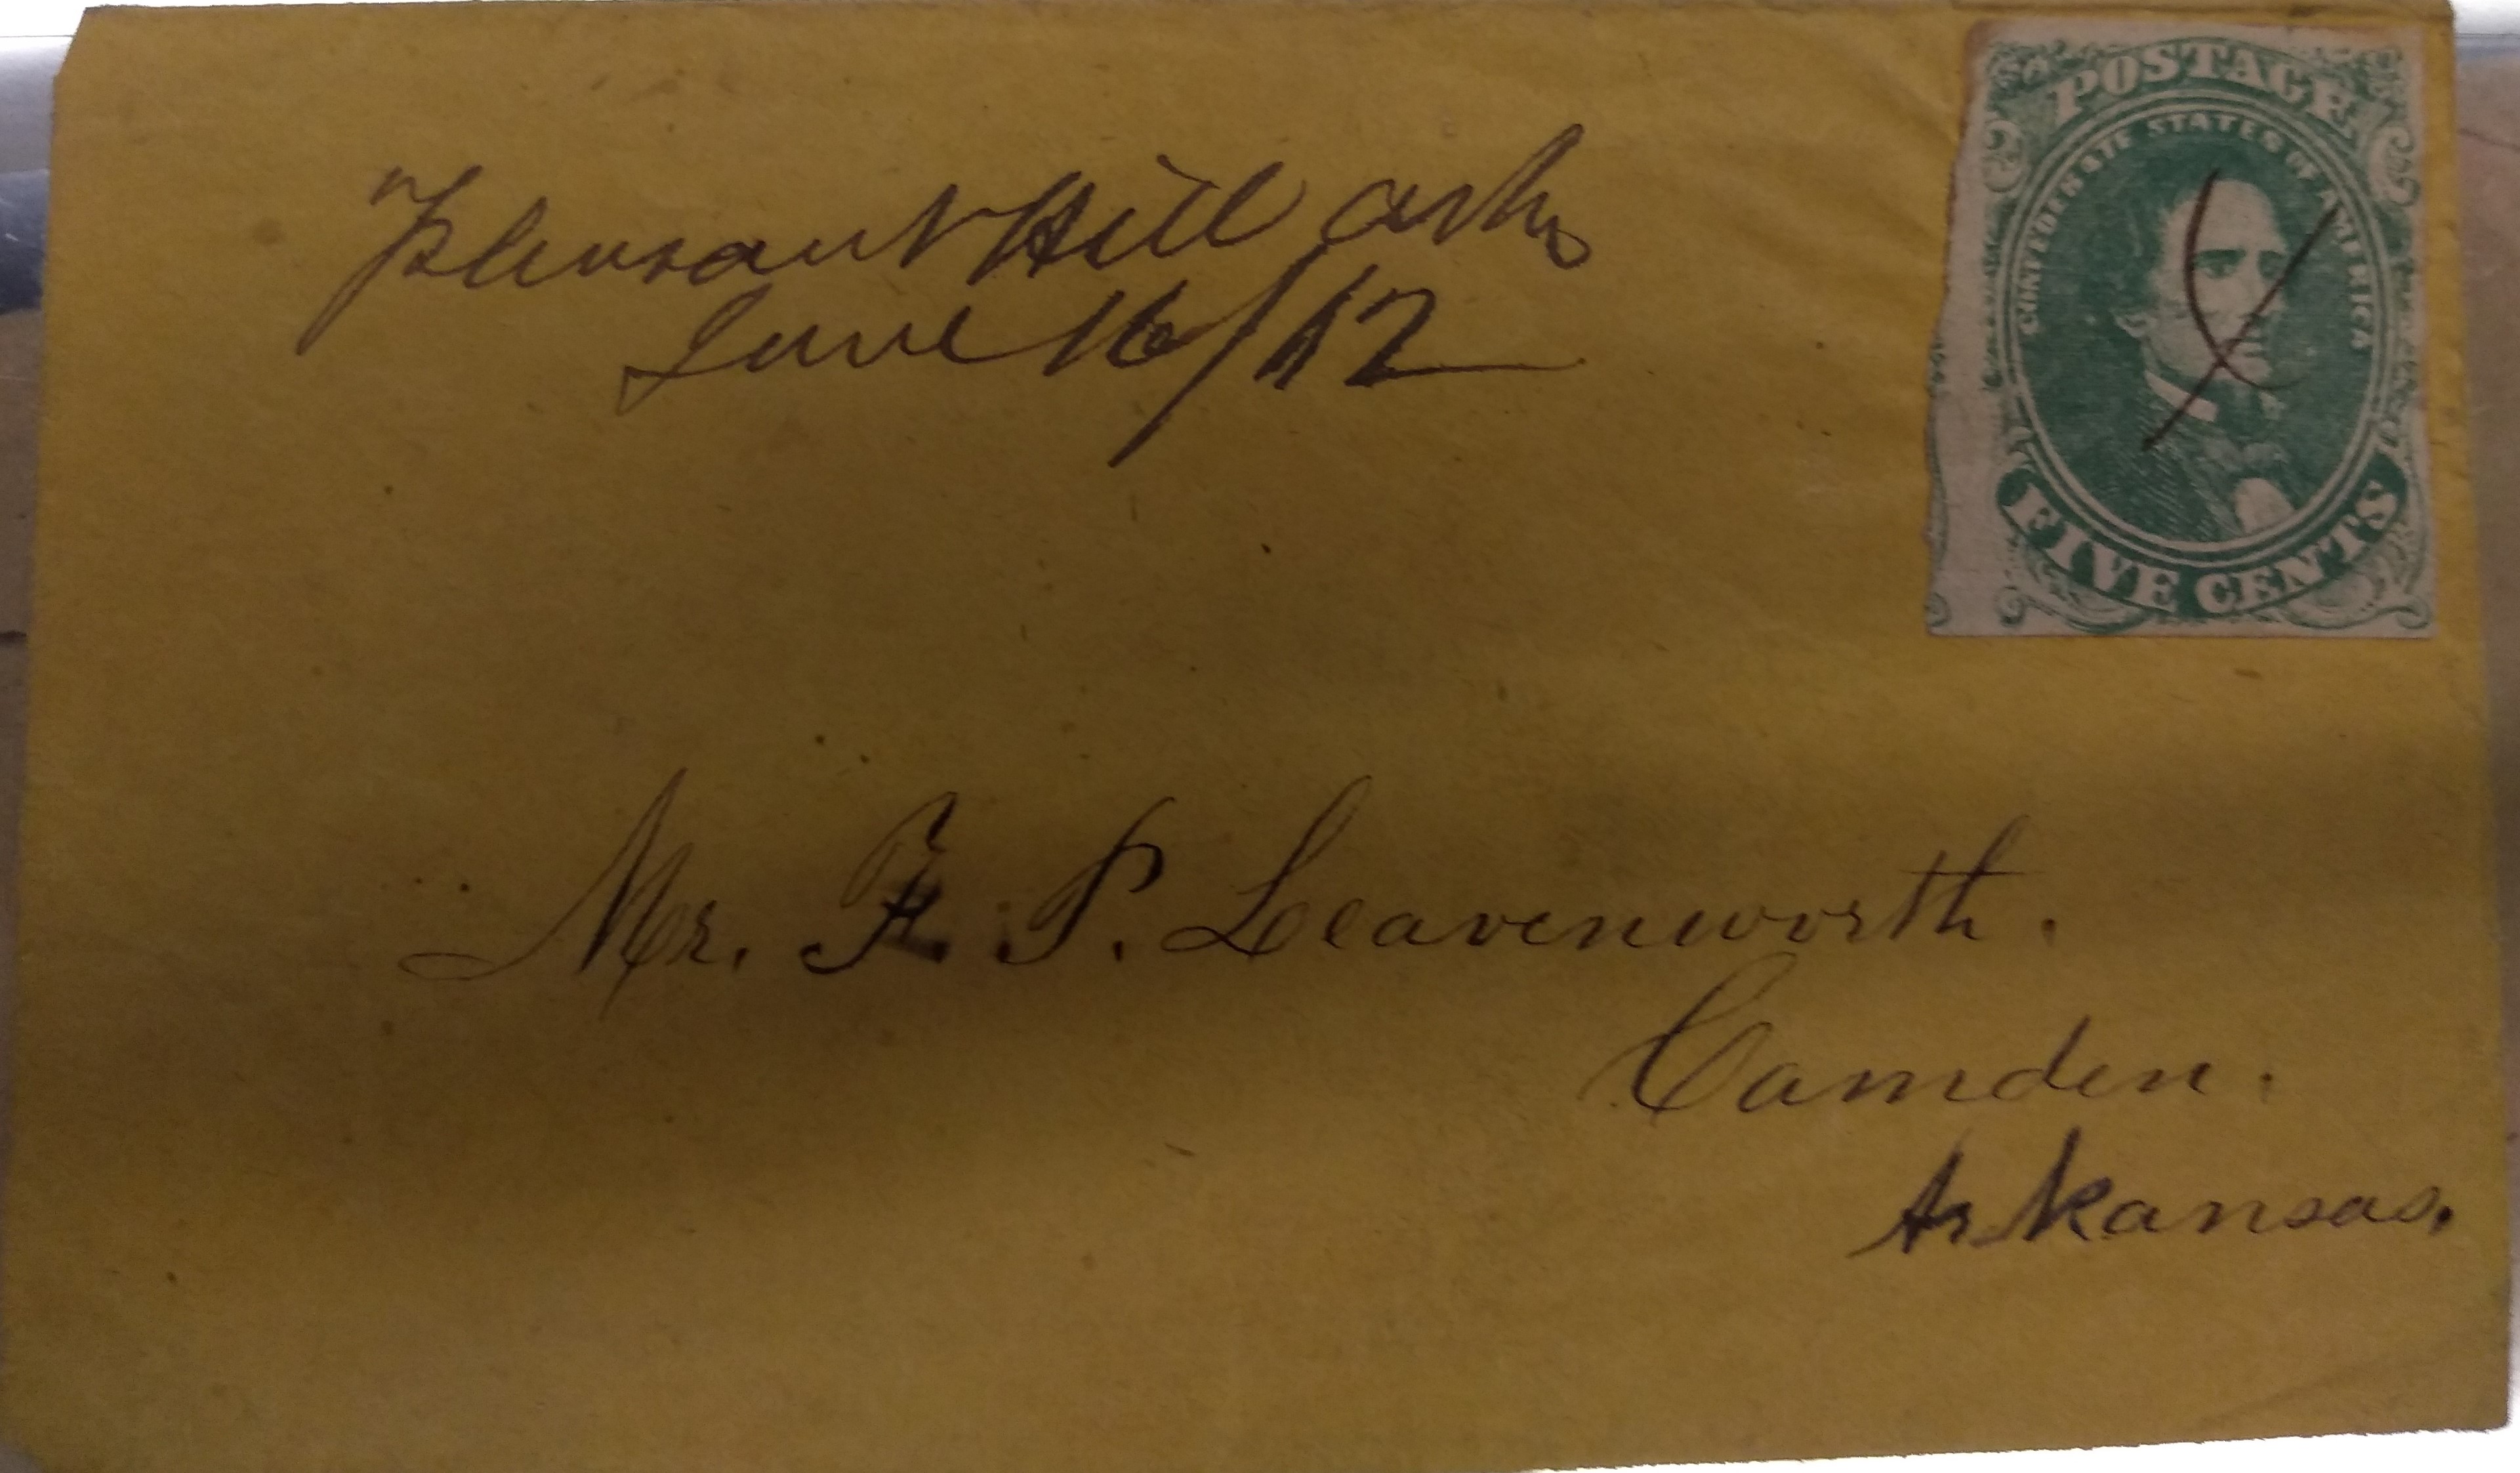 Pleasant Hill Arks
June 16/62
POSTAGE
CONFEDERATE STATES OF AMERICA
FIVE CENTS
Mr. F. P. Leavenworth.
Camden.
Arkansas.